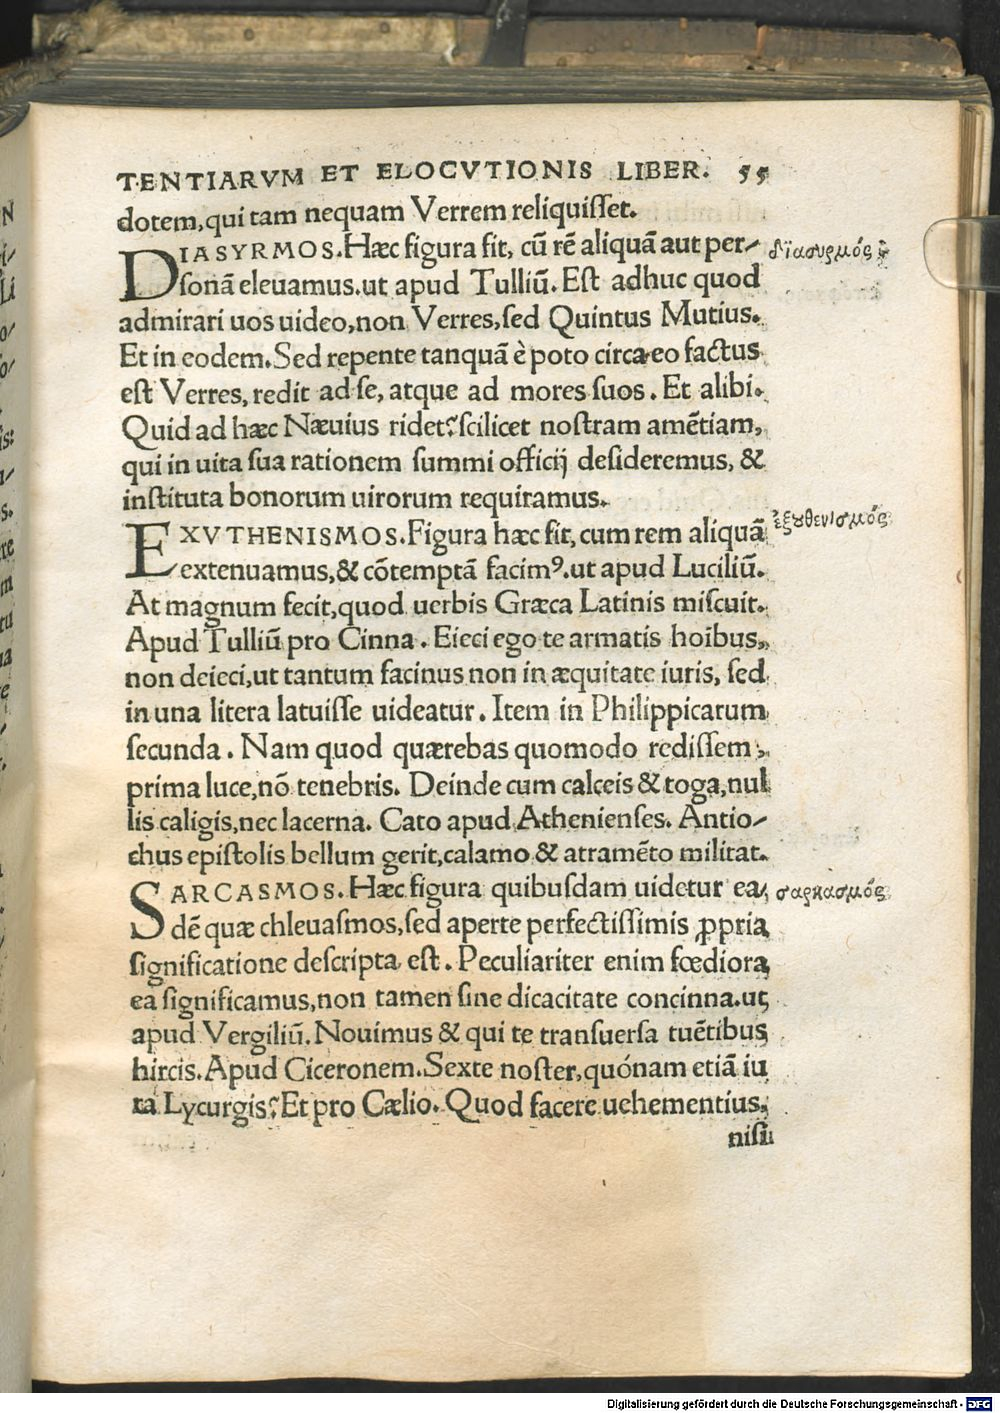 TENTIARVM ET ELOCVTIONIS LIBER. 55
dotem, qui tam nequam Verrem reliquisset.
DIASYRMOS. Hæc figura fit, cũ rẽ aliquã aut per-
sonã eleuamus. ut apud Tulliũ. Est adhuc quod
admirari uos uideo, non Verres, sed Quintus Mutius.
Et in eodem. Sed repente tanquã è poto circaeo factus
est Verres, redit ad se, atque ad mores suos. Et alibi.
Quid ad hæc Næuius ridet? scilicet nostram amẽtiam,
qui in uita sua rationem summi officij desideremus, &
instituta bonorum uirorum requiramus.
EXVTHENISMOS. Figura hæc fit, cum rem aliquã
extenuamus, & cõtemptã facimꝰ. ut apud Luciliũ.
At magnum fecit, quod uerbis Græca Latinis miscuit.
Apud Tulliũ pro Cinna. Eieci ego te armatis hoĩbus,
non deieci, ut tantum facinus non in æquitate iuris, sed
in una litera latuisse uideatur. Item in Philippicarum
secunda. Nam quod quærebas quomodo redissem,
prima luce, nõ tenebris. Deinde cum calceis & toga, nul
lis caligis, nec lacerna. Cato apud Athenienses. Antio-
chus epistolis bellum gerit, calamo & atramẽto militat.
SARCASMOS. Hæc figura quibusdam uidetur ea,
dẽ quæ chleuasmos, sed aperte perfectissimis ꝓpria
significatione descripta est. Peculiariter enim fœdiora
ea significamus, non tamen sine dicacitate concinna. ut
apud Vergiliũ. Nouimus & qui te transuersa tuẽtibus
hircis. Apud Ciceronem. Sexte noster, quónam etiã iu
ra Lycurgis? Et pro Cælio. Quod facere uehementius,
nisi
διασυρμός
ἐξȣθενισμός
σαρκασμός
Digitalisierung gefördert durch die Deutsche Forschungsgemeinschaft - DFG